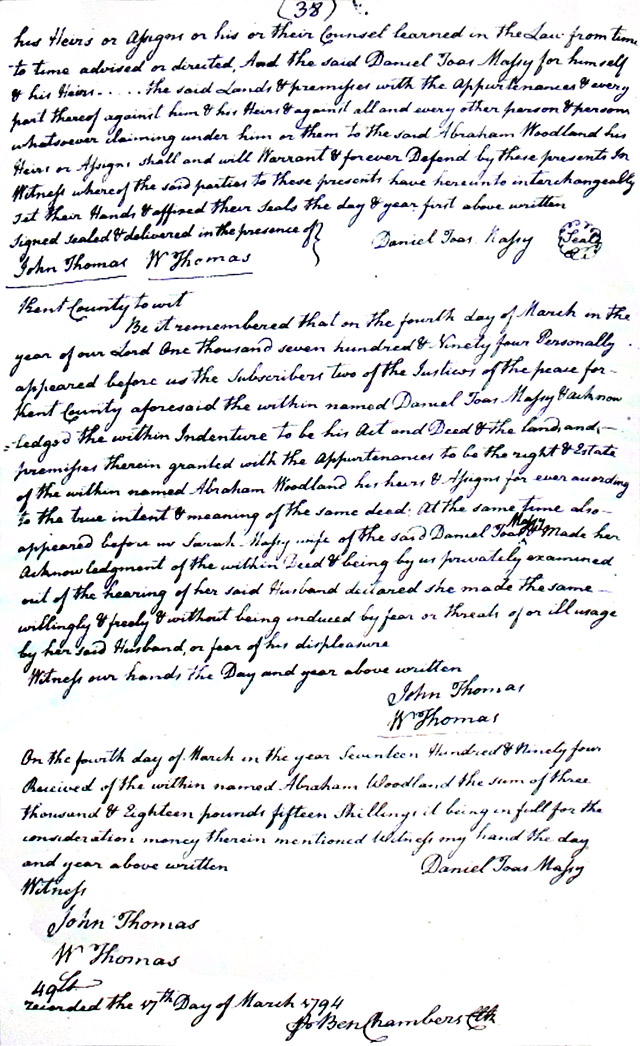 (38)
his Heirs or Assigns or his or their Counsel learned in the Law from time
to time advised or directed, And the said Daniel Toas Massy for himself
& his Heirs ..... the said Lands & premisses with the Appurtenances & every
part thereof against him & his Heirs & against all and every other person & persons
whatsoever claiming under him or them to the said Abraham Woodland his
Heirs or Assigns shall and will Warrant & forever Defend by these presents In
Witness whereof the said parties to these presents have hereunto interchangeably
set their Hands & affixed their Seals the day & year first above written
Signed sealed & delivered in the presence of } Daniel Toas Massy (Seal)
John Thomas W Thomas
Kent County to wit
Be it remembered that on the fourth day of March in the
year of our Lord One thousand seven hundred & Ninety four Personally
appeared before us the Subscribers two of the Justices of the peace for
Kent County aforesaid the within named Daniel Toas Massy & acknow
=ledged the within Indenture to be his Act and Deed & the land and
premisses therein granted with the Appurtenances to be the right & Estate
of the within named Abraham Woodland his heirs & Assigns for ever according
to the true intent & meaning of the same deed. At the same time also
appeared before us Sarah Massy wife of the said Daniel Toas Massy & Made her
Acknowledgment of the within Deed & being by us privately examined
out of the hearing of her said Husband declared she made the same
willingly & freely & without being induced by fear or threats of or ill usage
by her said Husband, or fear of his displeasure
Witness our hands the Day and year above written
John Thomas
W Thomas
On the fourth day of March in the year Seventeen Hundred & Ninety four
Received of the within named Abraham Woodland the sum of three
thousand & Eighteen pounds fifteen Shillings it being in full for the
consideration money therein mentioned Witness my hand the day
and year above written Daniel Toas Massy
Witness
John Thomas
W Thomas
recorded the 17th Day of March 1794
Ben Chambers Clk